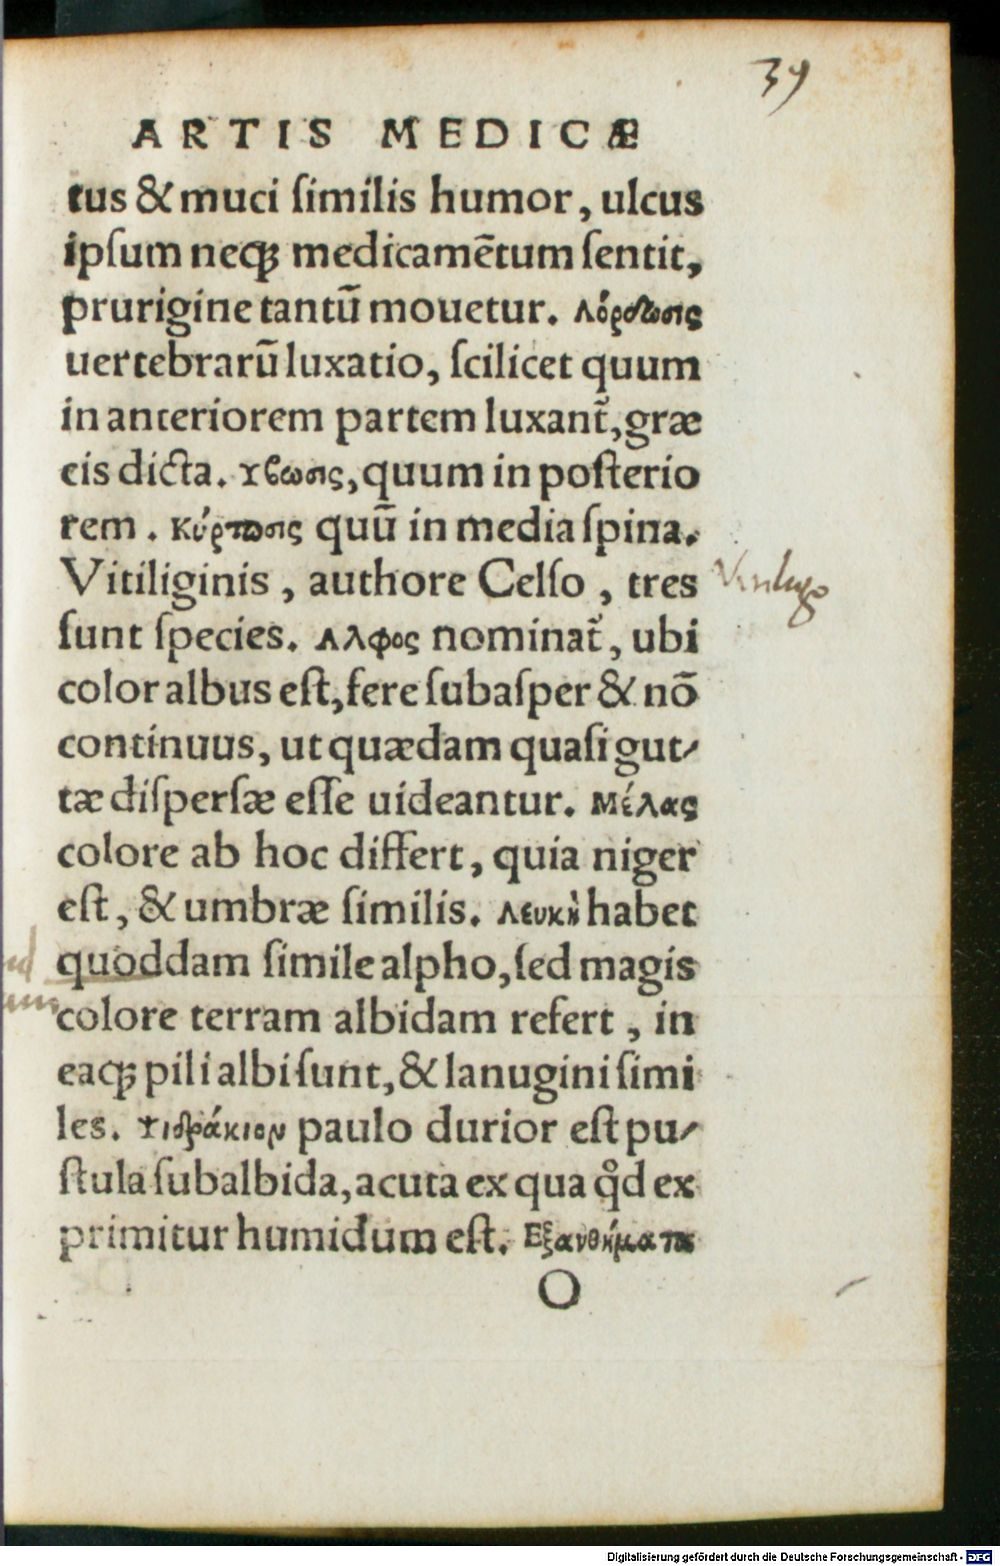 39
ARTIS MEDICÆ
tus & muci ſimilis humor, ulcus
ipſum neqꝫ medicamētum ſentit,
prurigine tantū mouetur. Λόρδωσις
uertebrarū luxatio, ſcilicet quum
in anteriorem partem luxant᷑, græ
cis dicta. ϒβωσις, quum in poſterio
rem. Κύρτωσις quū in media ſpina.
Vitiliginis, authore Celſo, tres
Vitiligo
ſunt ſpecies. Αλφος nominat᷑, ubi
color albus eſt, fere ſubaſper & nō
continuus, ut quædam quaſi gut⸗
tæ diſperſæ eſſe uideantur. Μέλας
colore ab hoc differt, quia niger
eſt, & umbræ ſimilis. Λευκὴ habet
quoddam ſimile alpho, ſed magis
colore terram albidam refert, in
eaqꝫ pili albi ſunt, & lanugini ſimi
les. Ψιδράκιον paulo durior eſt pu⸗
ſtula ſubalbida, acuta ex qua qd̊ ex
primitur humidum eſt. Εξανθήματα
O
Digitalisierung gefördert durch die Deutsche Forschungsgemeinschaft - DFG